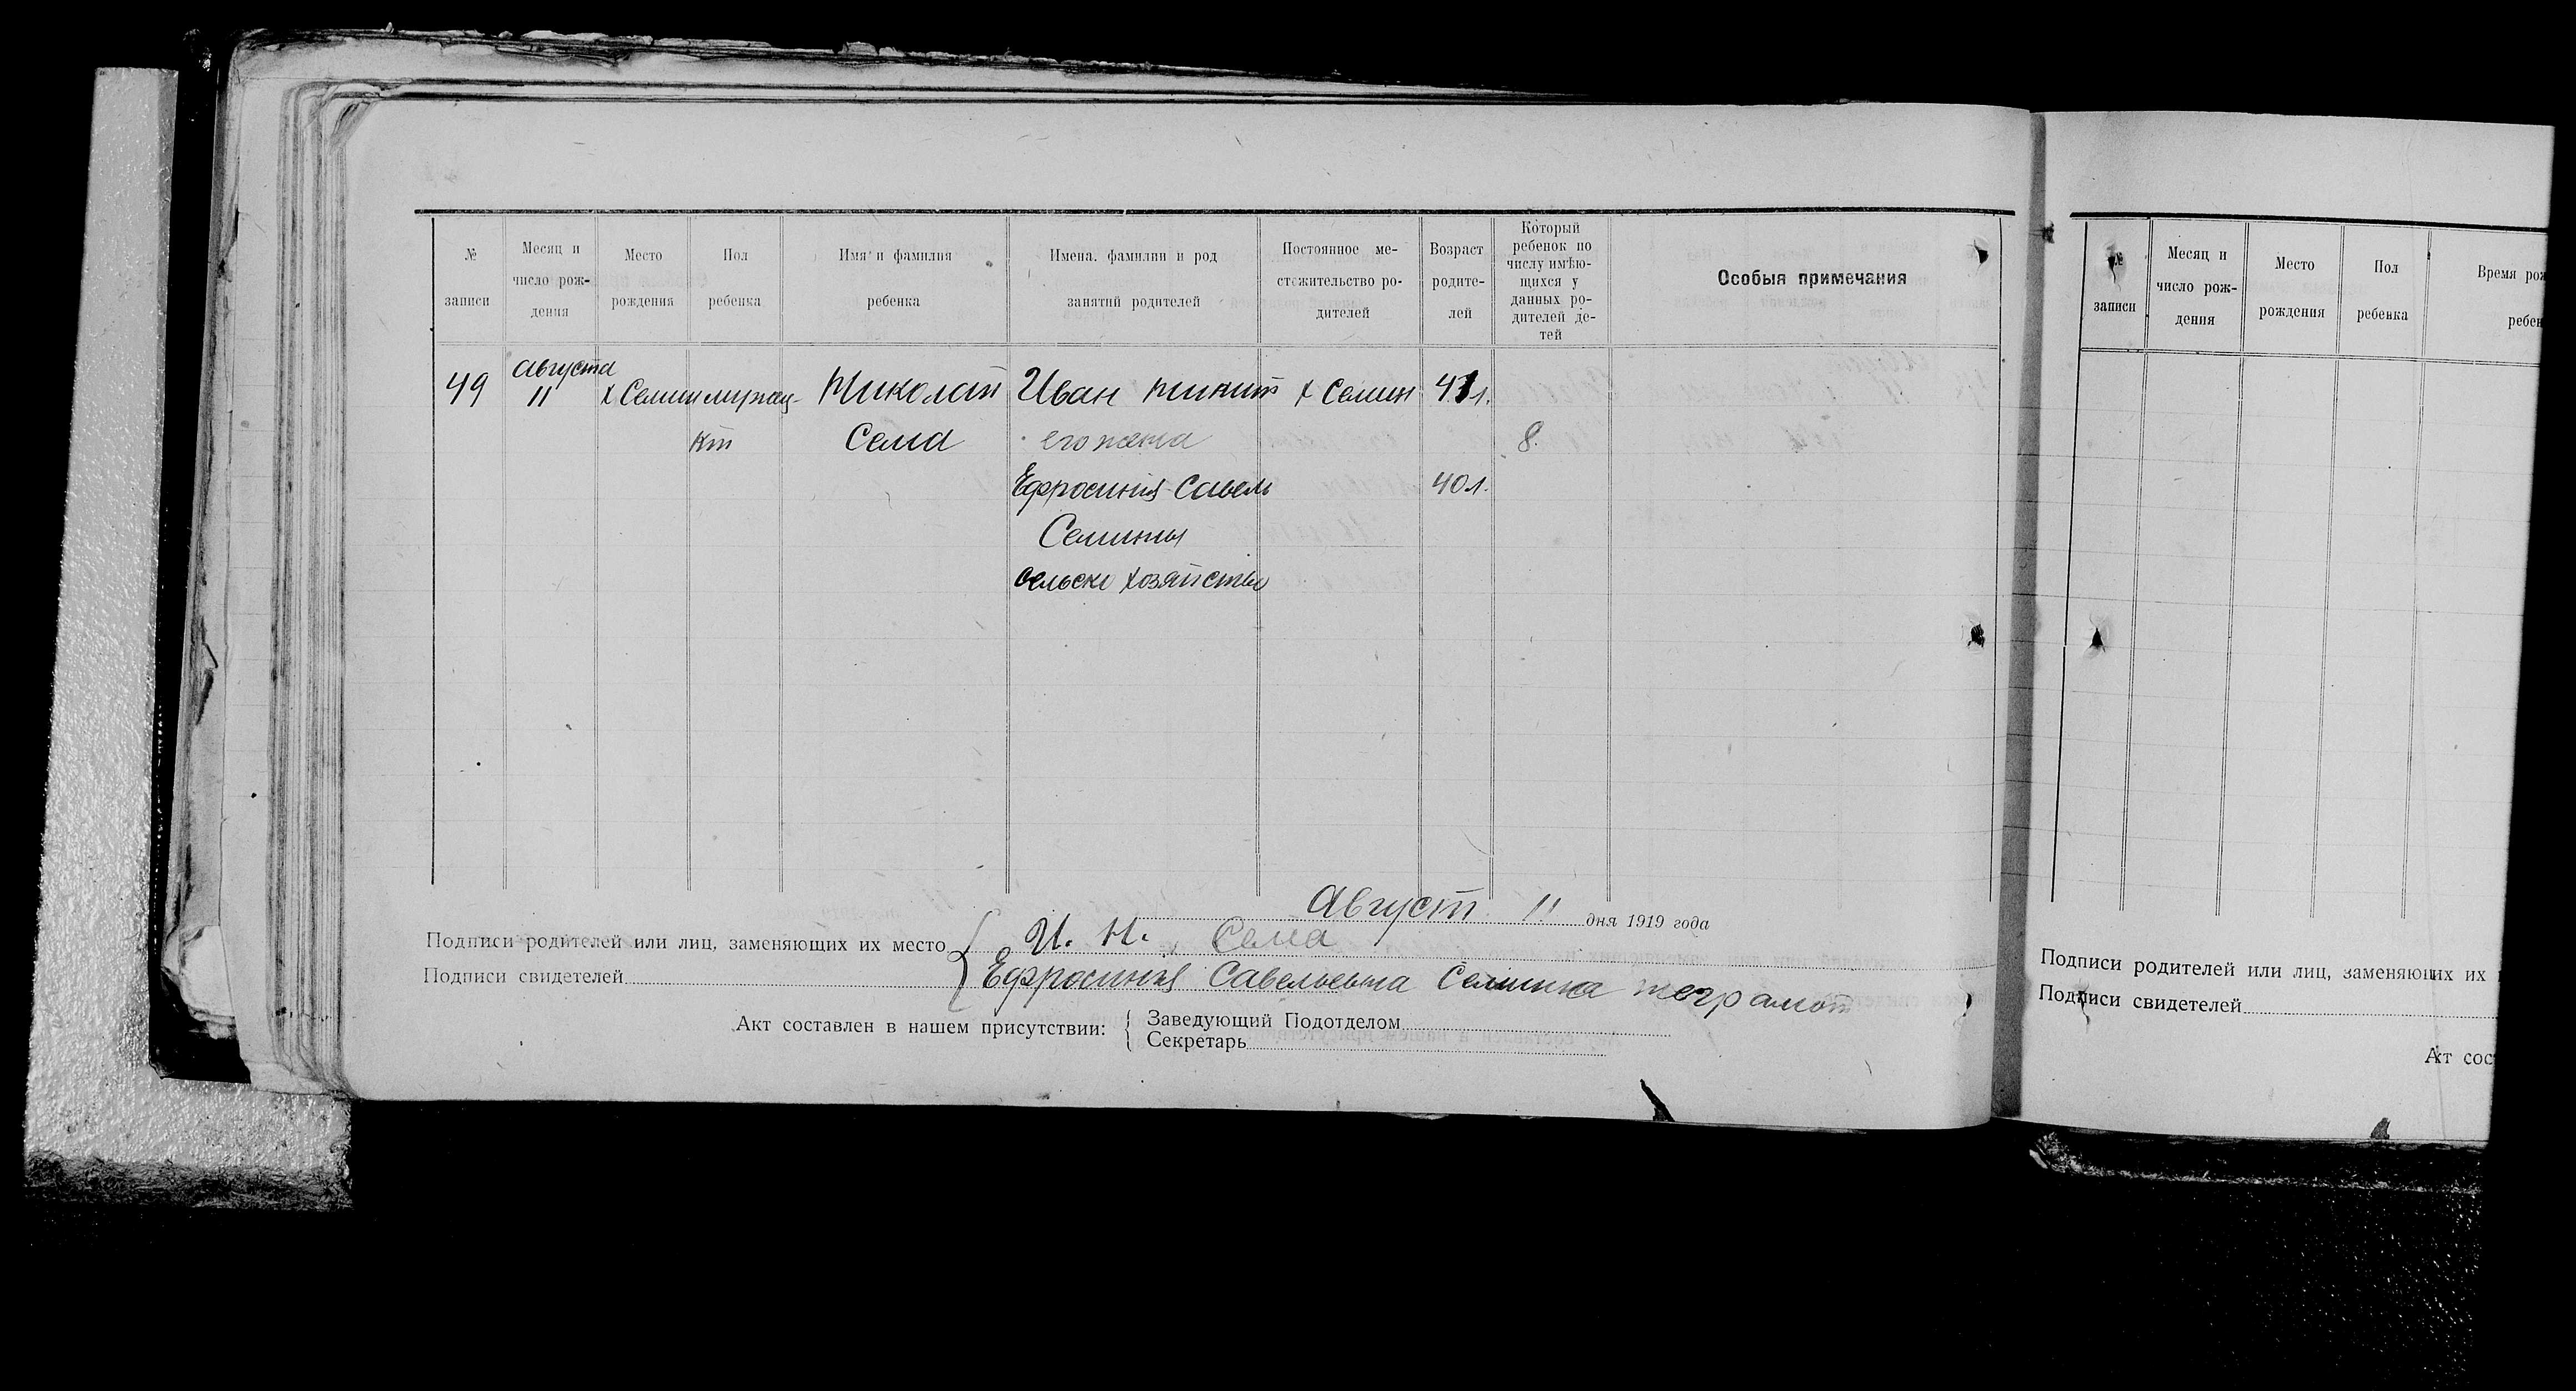 № записи
Месяц и число рождения
Место рождения
Пол ребенка
Имя и фамилия ребенка
Имена, фамилии и род занятий родителей
Постоянное местожительство родителей
Возраст родителей
Который ребенок по числу имѣющихся у данных родителей детей
Особыя примечания
49 августа 11 х Семин Николай Иван Никит х Семин 41 л.
Сема его жена 8.
Ефросиния Савель 40 л.
Семины
сельск хозяйство
Август 11 дня 1919 года
Подписи родителей или лиц, заменяющих их место И. Н. Сема
Подписи свидетелей Ефросиния Савельевна Семина неграмот
Акт составлен в нашем присутствии: Заведующий Подотделом
Секретарь
№ записи
Месяц и число рождения
Место рождения
Пол ребенка
Время рож
ребен
Подписи родителей или лиц, заменяющих их
Подписи свидетелей
Акт сос